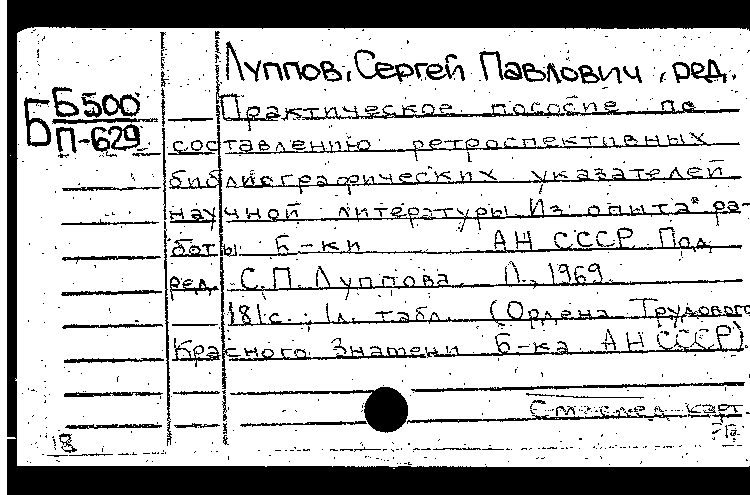 Луппов, Сергей Павлович, ред.
Б Б500
П-629
Практическое пособие по
составлению ретроспективных
библиографических указателей
научной литературы Из опыта ра-
боты Б-ки АН СССР Под
ред. С.П. Луппова. Л., 1969.
181с.; 1л. табл. (Ордена Трудового
Красного Знамени Б-ка АН СССР).
См. след карт
18